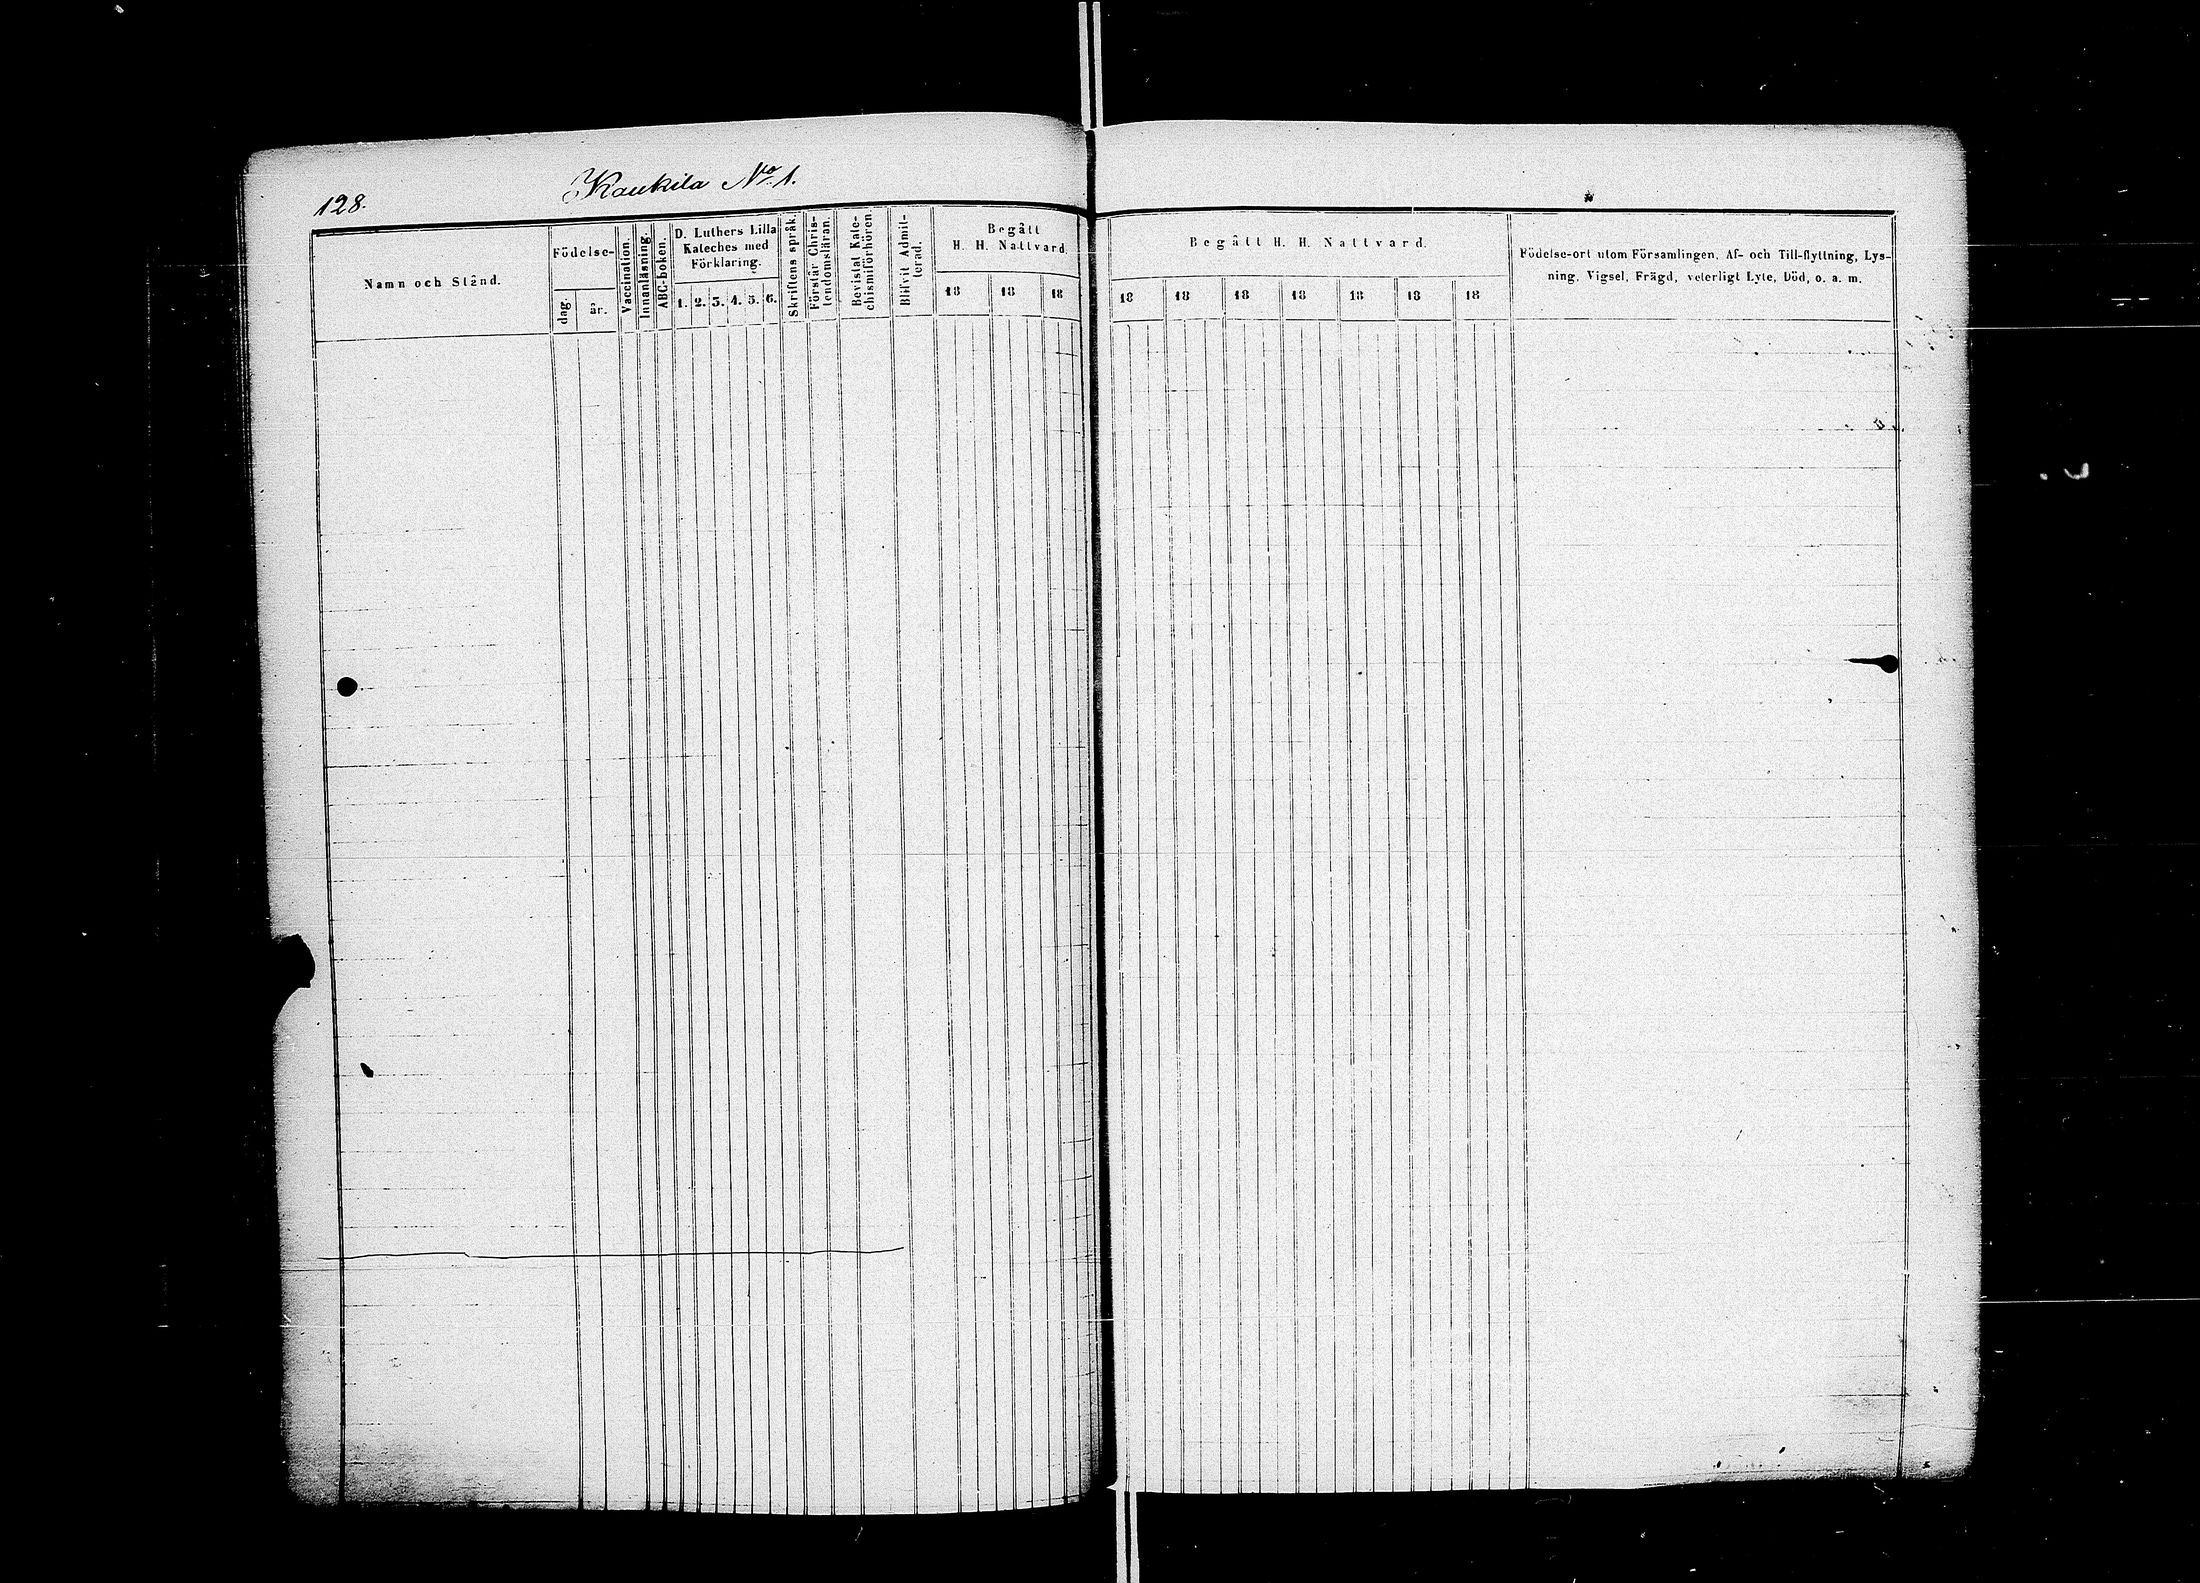 128.
Kaukila No 1.
Namn och Stånd.
Födelse-
dag.
år.
Vaccination.
Innanläsning.
ABC-boken.
D. Luthers Lilla
Kateches med
Förklaring.
1. 2. 3. 4. 5. 6.
Skriftens språk.
Förstår Chris-
tendomsläran.
Bevistat Kate-
chismiförhören.
Blifvit Admit-
terad.
Begått
H. H. Nattvard.
18 18 18
Begått H. H. Nattvard.
18 18 18 18 18 18 18
Födelse-ort utom Församlingen, Af- och Till-flyttning, Lys-
ning, Vigsel, Frägd, veterligt Lyte, Död, o. a. m.